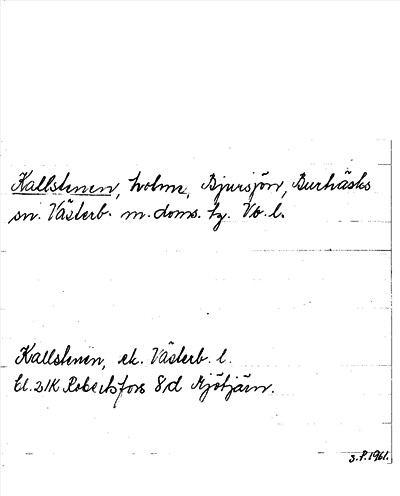 Kallstenen, holme, Bjursjön, Burträsks
sn. Västerb. m. doms. tg. Vb. l.
Kallstenen, ek. Västerb. l.
bl. 21K Robertsfors 8d
3.8.1961.